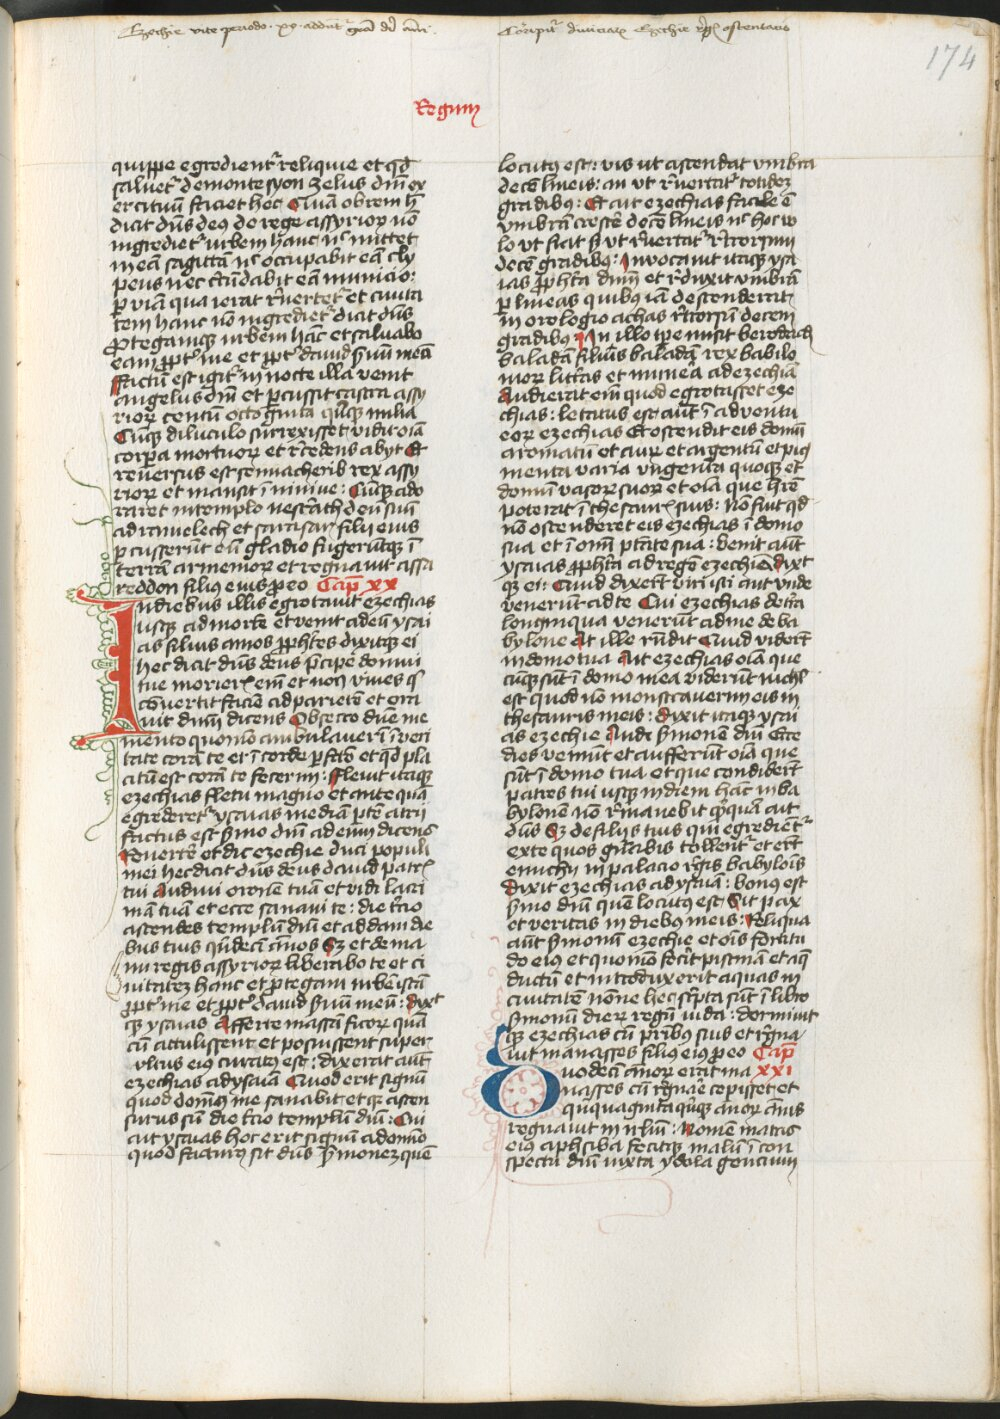 Ezechie vite periodo xv addunt gra
Ezechie ostentatio
174
Regum
quippe egredientr reliquie et qd
saluetr de monte syon zelus dni ex
ercituum faciet hec Quam obrem h
dicit dns deus de rege assyrior no
ingredietr urbem hanc nc mittet
in eam sagittam nc occupabit eam cly
peus nec cirdabit eam municio:
p viam qua ierat revertetr et ciuita
tem hanc no ingredietr dicit dns
Protegamqz urbem hac et saluabo
eam ppt me et ppt dauid suu meu
Factu est igitr in nocte illa venit
angelus dni et percussit castra assy
rior centu octoginta qnqz milia
Cuqz diluculo surrexisset vidit oia
corpora mortuor et recedens abyt Et
reuersus est sennacherib rex assy
rior et mansit i niniue: Cuqz ado
raret in templo nesrath deu suu
adramelech et sarasar filii eius
pcusserut eu gladio fugeruntqz i
terra armenior et regnauit assa
reddon filius eius p eo Cap xx
In diebus illis egrotauit ezechias
usqz ad morte et venit ad eu ysai
as filius amos prophtes dixitqz ei
hec dicit dns deus pcipe domui
tue morier em et non viues q
couertit facie ad pariete et ora
uit dnm dicens Obsecro dne me
mento quomo ambulauerim i veri
tate cora te et i corde pfcto et qd pla
citu est cora te fecerim: Fleuit itaqz
ezechias fletu magno et ante qua
egrederetr ysaias media pte atrii
factus est smo dni ad eum dicens
Reuerte et dic ezechie duci populi
mei hec dicit dns deus dauid patris
tui Audiui orone tua et vidi lacri
ma tua et ecce sanaui te: die tercio
ascendes templu dni et addam die
bus tuis qndeci annos Sz et de ma
nu regis assyrior liberabo te et ci
uitatez hanc et protegam urbe ista
ppt me et ppt dauid suu meu: dixit
qz ysaias Afferte massa ficor qua
cu attulissent et posuissent super
vlcus eius curatus est: dixerat aut
ezechias ad ysaia Quod erit signu
quod domus me sanabit et qz ascen
surus su die tercio templu dni: Cui
ait ysaias hoc erit signu a domino
quod facturus sit dns smonez que
locutus est: vis ut ascendat vmbra
dece lineis: an ut reuertatr totidez
gradibus: Et ait ezechias facile e
vmbra creste dece lineis nc hoc vo
lo ut fiat s ut reuertatr retrorsum
dece gradibus: Inuocauit itaqz ysa
ias propheta dnm et reduxit vmbra
p lineas quibus ia descenderat
in orologio achas retrorsu decem
gradibus In illo tpe misit berodach
balada filius balada rex babilo
nior litteras et munera ad ezechia
Audierat em quod egrotasset eze
chias: letatus est aut i aduentu
eor ezechias Et ostendit eis domu
aromatu et aur et argentu et pig
menta varia ungenta quoqz et
domu vasor suor et oia que here
poterat i thesauris suis: No fuit qd
no ostenderet eis ezechias i domo
sua et i omi ptate sua: venit aut
ysaias propheta ad rege ezechia dixit
qz ei: Quid dixert viri isti aut unde
venerut ad te Cui ezechias de tra
longinqua venerut ad me de ba
bylone At ille rndit Quid videret
in domo tua Ait ezechias oia que
cuqz sut i domo mea viderut nichl
est quod no monstrauerim eis in
thesauris meis: dixit itaqz ysai
as ezechie Audi smone dni Ecce
dies veniut et aufferut oia que
sut i domo tua et que condidert
patres tui usqz in diem hac in ba
bylone no remanebit qcqua ait
dns Sz de filiis tuis qui egredientr
ex te quos generabis tollentr et ert
enuchy in palacio regis babylois
Dixit ezechias ad ysaia: bonus est
smo dni que locutus est: Sit pax
et veritas in diebus meis: Reliqua
aut smonu ezechie et ois fortitu
do eius et quomo fecit piscina et aq
ductu et introduxerit aquas in
ciuitate none hec scripta sut i libro
smonu dier regu iuda: dormiuit
qz ezechias cu patribus suis et regna
uit manasses filius eius p eo Cap
Duodeci annor erat ma xxi
nasses cu regnare cepisset et
quinquaginta qnqz anor annis
regnauit in irlm: Nomen matris
eius aphsiba fecitqz malu i con
spectu dni iuxta ydola gencium